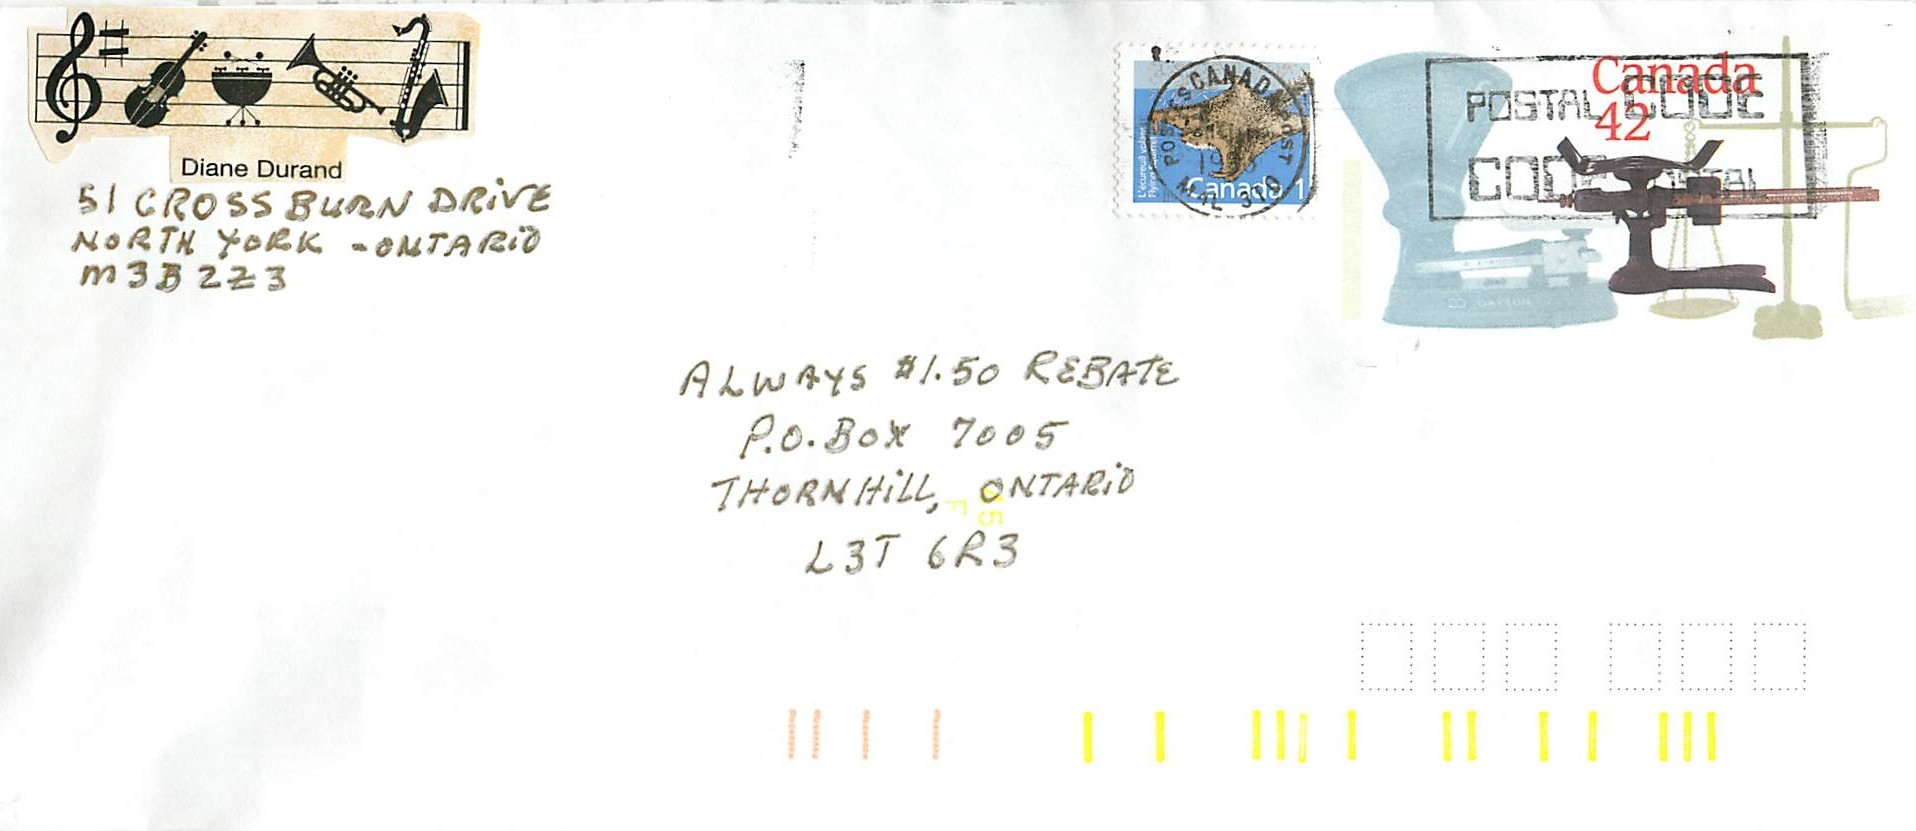 Diane Durand
51 CROSS BURN DRIVE
NORTH YORK - ONTARIO
M3B 2Z3
POSTES CANADA POST
M4L 3T0
L'écureuil volant
Canada 1
Canada
42
POSTAL CODE
CODE POSTAL
DAYTON
ALWAYS $1.50 REBATE
P.O. BOX 7005
THORNHILL, ONTARIO
L3T 6R3
15
F